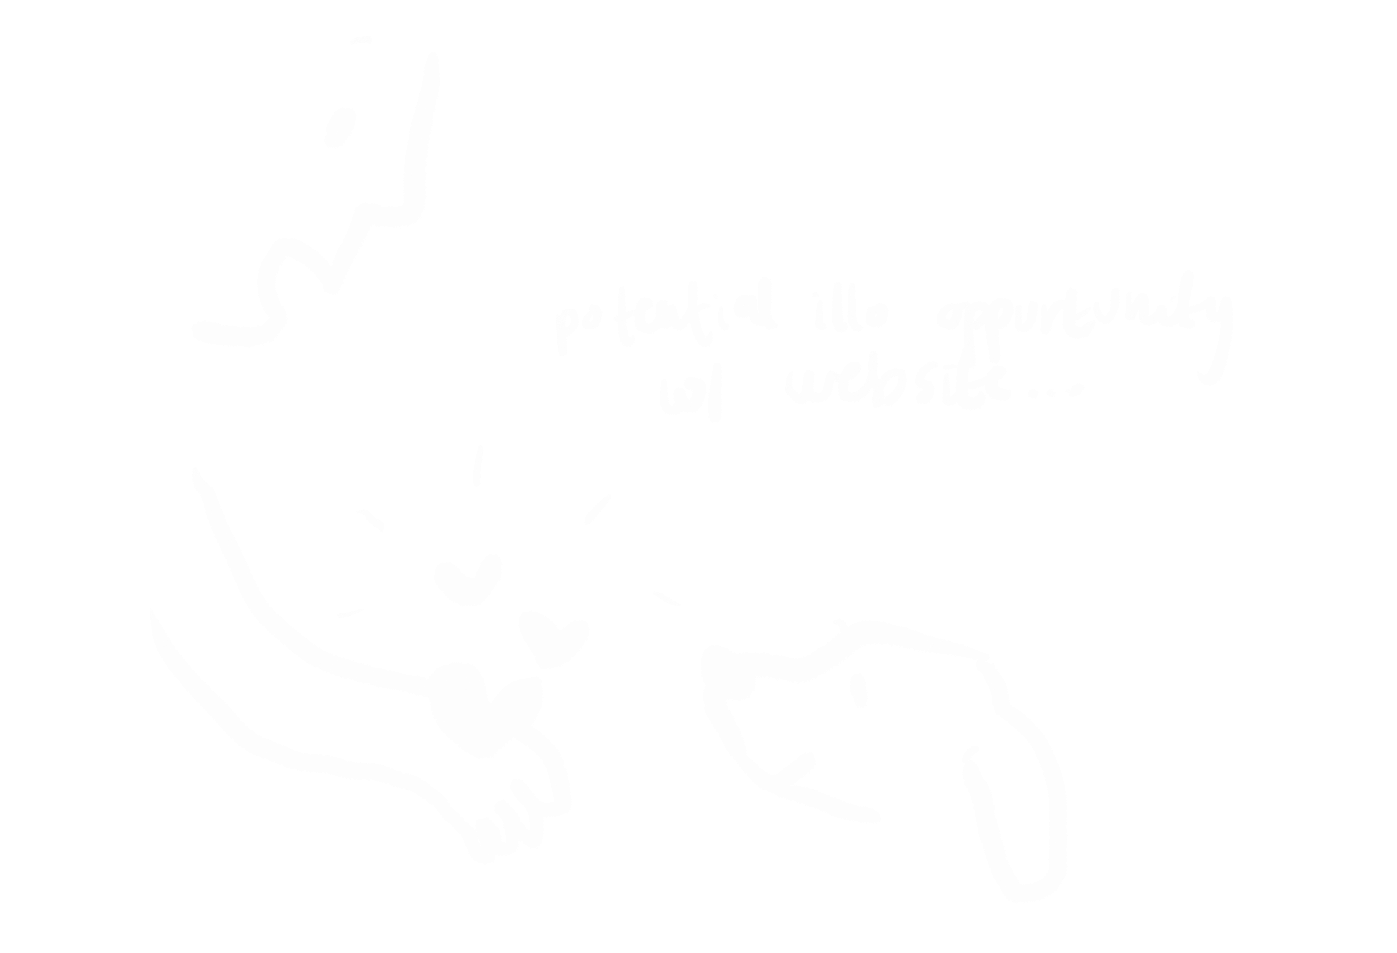 potential illo oppurtunity
w/ website...